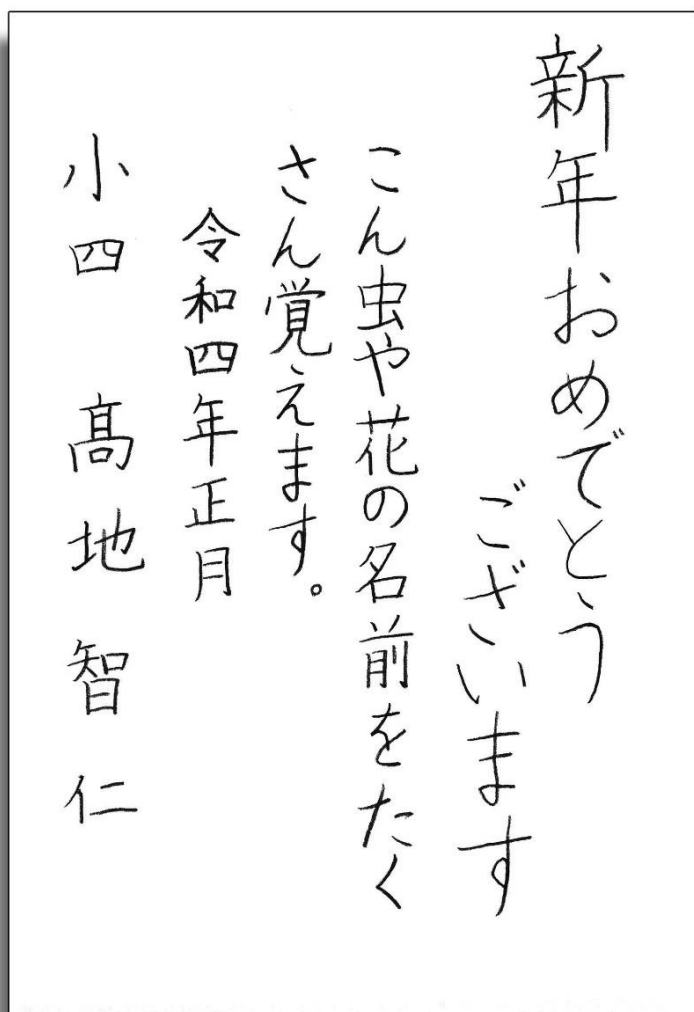 新年おめでとう
ございます
こん虫や花の名前をたく
さん覚えます。
令和四年正月
小四 髙地智仁